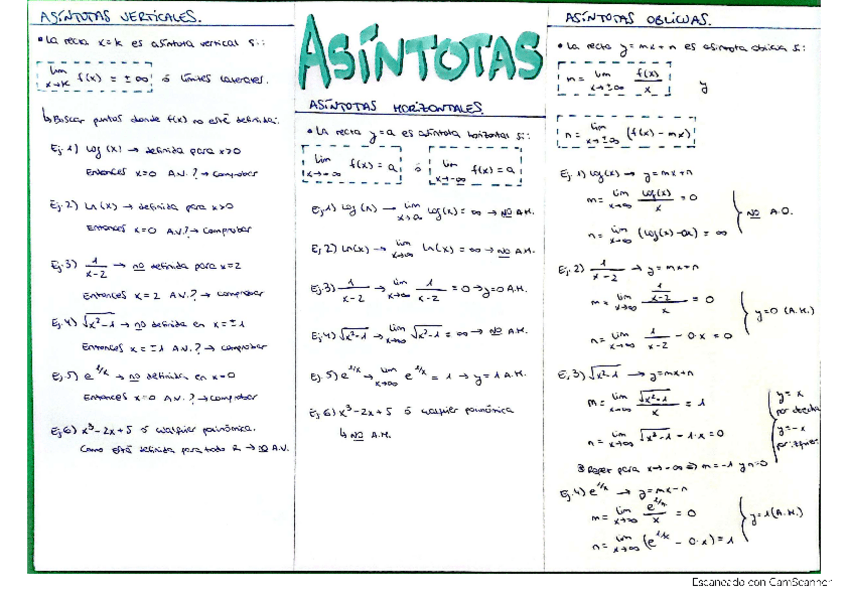 ASÍNTOTAS VERTICALES.
• La recta x=k es asíntota vertical si:
lim x→k f(x) = ±∞ ó límites laterales.
↳ Buscar puntos donde f(x) no esté definida:
Ej. 1) log(x) → definida para x>0
Entonces x=0 A.V.? → comprobar
Ej. 2) ln(x) → definida para x>0
Entonces x=0 A.V.? → comprobar
Ej. 3) 1/(x-2) → no definida para x=2
Entonces x=2 A.V.? → comprobar
Ej. 4) √(x²-1) → no definida en x=±1
Entonces x=±1 A.V.? → comprobar
Ej. 5) e^(1/x) → no definida en x=0
Entonces x=0 A.V.? → comprobar
Ej. 6) x³-2x+5 ó cualquier polinómica.
Como está definida para todo ℝ → no A.V.
ASÍNTOTAS
ASÍNTOTAS HORIZONTALES.
• La recta y=a es asíntota horizontal si:
lim x→∞ f(x) = a ó lim x→-∞ f(x) = a
Ej. 1) log(x) → lim x→∞ log(x) = ∞ → NO A.H.
Ej. 2) ln(x) → lim x→∞ ln(x) = ∞ → NO A.H.
Ej. 3) 1/(x-2) → lim x→∞ 1/(x-2) = 0 → y=0 A.H.
Ej. 4) √(x²-1) → lim x→∞ √(x²-1) = ∞ → NO A.H.
Ej. 5) e^(1/x) → lim x→∞ e^(1/x) = 1 → y=1 A.H.
Ej. 6) x³-2x+5 ó cualquier polinómica
↳ NO A.H.
ASÍNTOTAS OBLICUAS.
• La recta y=mx+n es asíntota oblicua si:
m = lim x→±∞ f(x)/x y
n = lim x→±∞ (f(x) - mx)
Ej. 1) log(x) → y=mx+n
m = lim x→∞ log(x)/x = 0
n = lim x→∞ (log(x)-0x) = ∞
NO A.O.
Ej. 2) 1/(x-2) → y=mx+n
m = lim x→∞ (1/(x-2))/x = 0
n = lim x→∞ 1/(x-2) - 0·x = 0
y=0 (A.H.)
Ej. 3) √(x²-1) → y=mx+n
m = lim x→∞ √(x²-1)/x = 1
n = lim x→∞ √(x²-1) - 1·x = 0
y=x
por derecha
y=-x
por izquier
Repetir para x→-∞ ⇒ m=-1 y n=0
Ej. 4) e^(1/x) → y=mx-n
m = lim x→∞ e^(1/x)/x = 0
n = lim x→∞ (e^(1/x) - 0·x) = 1
y=1 (A.H.)
Escaneado con CamScanner